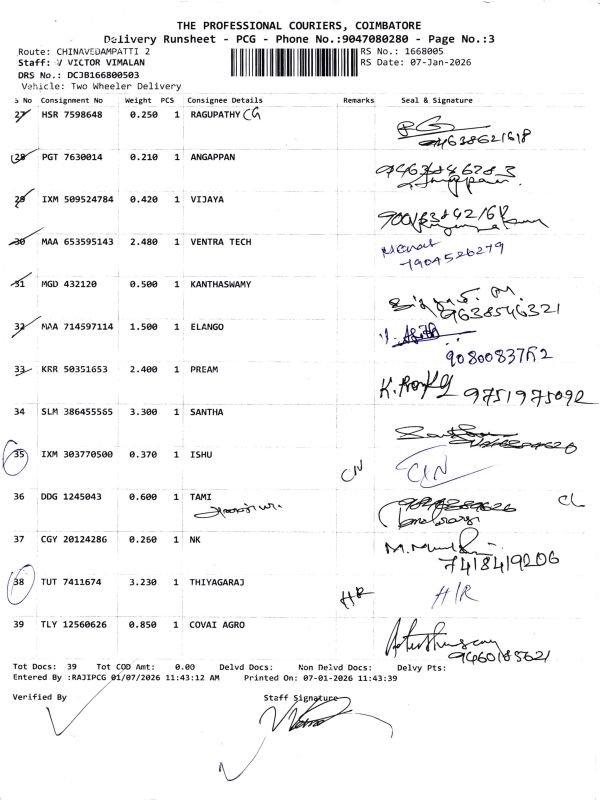 THE PROFESSIONAL COURIERS, COIMBATORE
Delivery Runsheet - PCG - Phone No.:9047080280 - Page No.:3
Route: CHINAVEDAMPATTI 2 RS No.: 1668005
Staff: V VICTOR VIMALAN RS Date: 07-Jan-2026
DRS No.: DCJB166800503
Vehicle: Two Wheeler Delivery
S No Consignment No Weight PCS Consignee Details Remarks Seal & Signature
27 HSR 7598648 0.250 1 RAGUPATHY CG
94638621618
28 PGT 7630014 0.210 1 ANGAPPAN
29 IXM 509524784 0.420 1 VIJAYA
30 MAA 653595143 2.480 1 VENTRA TECH
7904526279
31 MGD 432120 0.500 1 KANTHASWAMY
9638546321
32 MAA 714597114 1.500 1 ELANGO
33 KRR 50351653 2.400 1 PREAM
9751975092
34 SLM 386455565 3.300 1 SANTHA
35 IXM 303770500 0.370 1 ISHU CN CN
36 DDG 1245043 0.600 1 TAMI CL
37 CGY 20124286 0.260 1 NK
7418419206
38 TUT 7411674 3.230 1 THIYAGARAJ HR H/R
39 TLY 12560626 0.850 1 COVAI AGRO
9460185621
Tot Docs: 39 Tot COD Amt: 0.00 Delvd Docs: Non Delvd Docs: Delvy Pts:
Entered By :RAJIPCG 01/07/2026 11:43:12 AM Printed On: 07-01-2026 11:43:39
Verified By Staff Signature